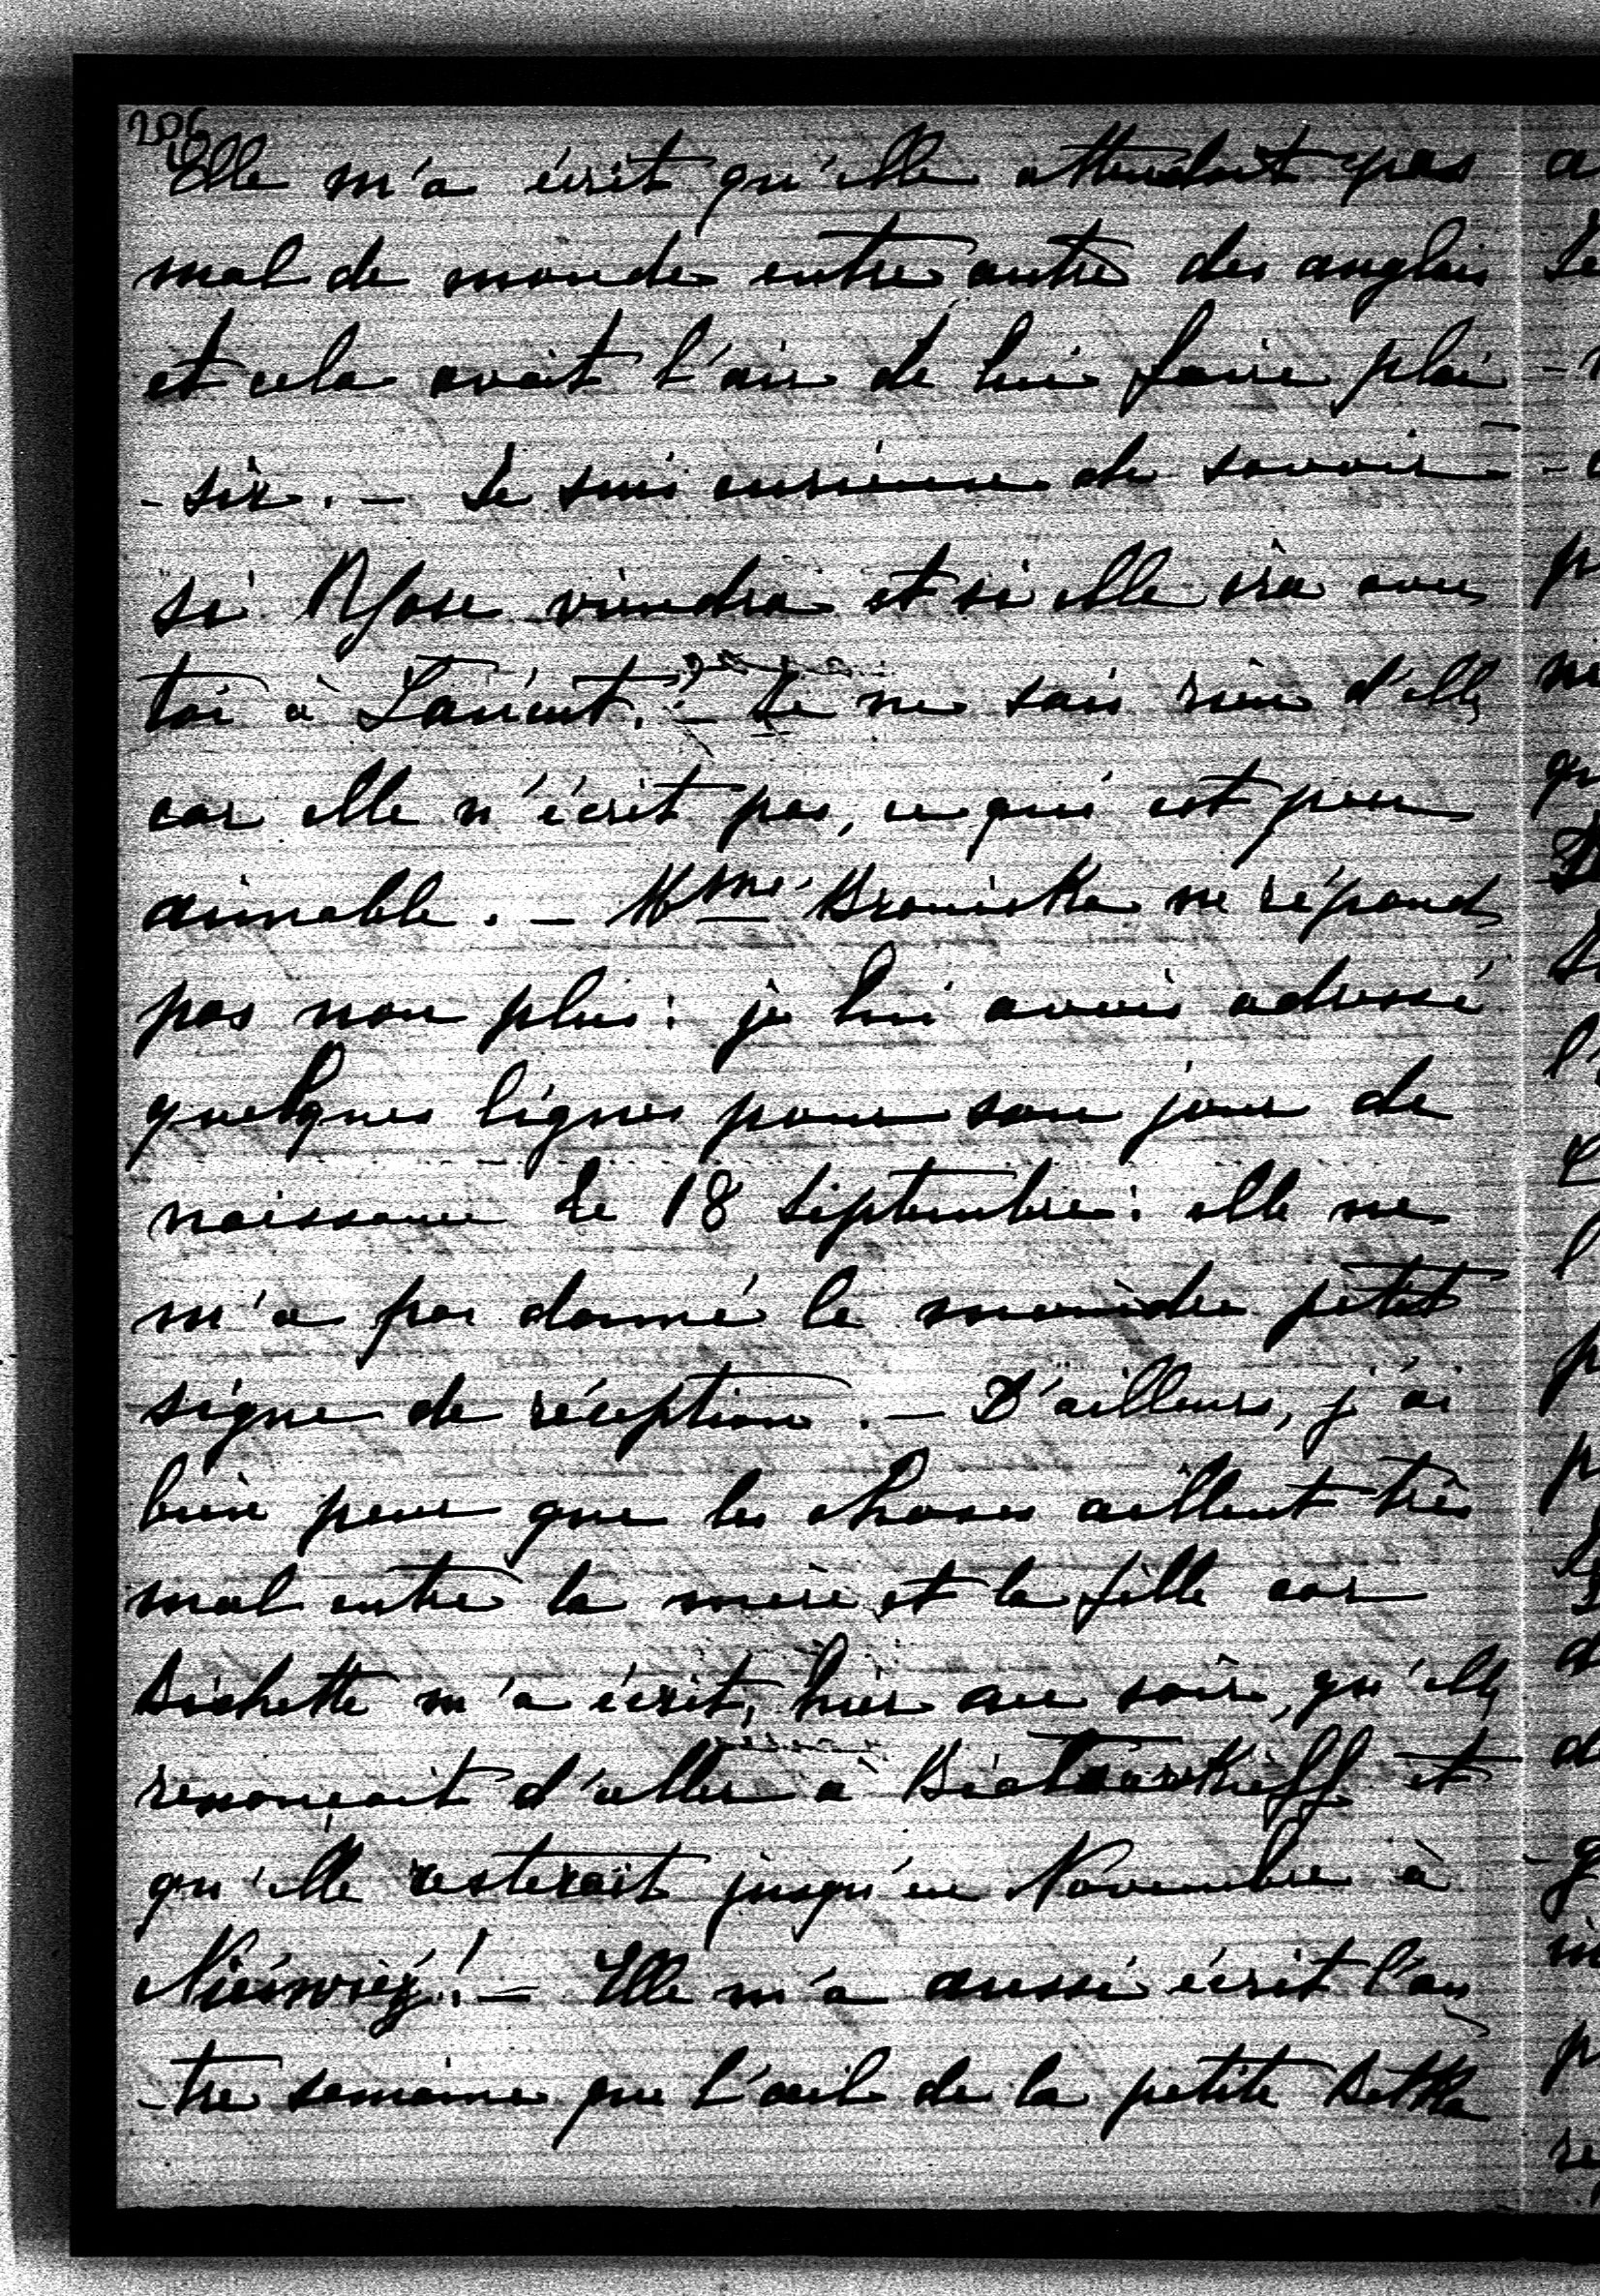 206
Elle m'a écrit qu'elle attendait pas
mal de monde entre autre des anglais
et cela avait l'air de lui faire plai
-sir. — Je suis curieuse de savoir
si Rose viendra et si elle ira avec
toi à Łańcut. — Je ne sais rien d'elle
car elle n'écrit pas, ce qui est peu
aimable. — Mme Broniska ne répond
pas non plus: je lui avais adressé
quelques lignes pour son jour de
naissance le 18 Septembre: elle ne
m'a pas donné le moindre petit
signe de réception. — D'ailleurs, j'ai
bien peur que les choses aillent très
mal entre la mère et la fille car
Bichette m'a écrit, hier au soir, qu'elle
renonçait d'aller à et
qu'elle resterait jusqu'en Novembre à
Nieśwież! — Elle m'a aussi écrit l'au
-tre semaine que l'œil de la petite